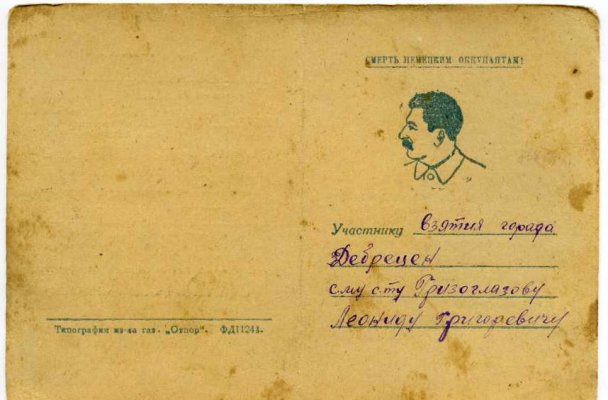 СМЕРТЬ НЕМЕЦКИМ ОККУПАНТАМ!
Участнику взятия города
Дебрецен
Гризоглазову
Леониду Григоревичу
Типография из-ва газ. „Отпор“. ФД11244.